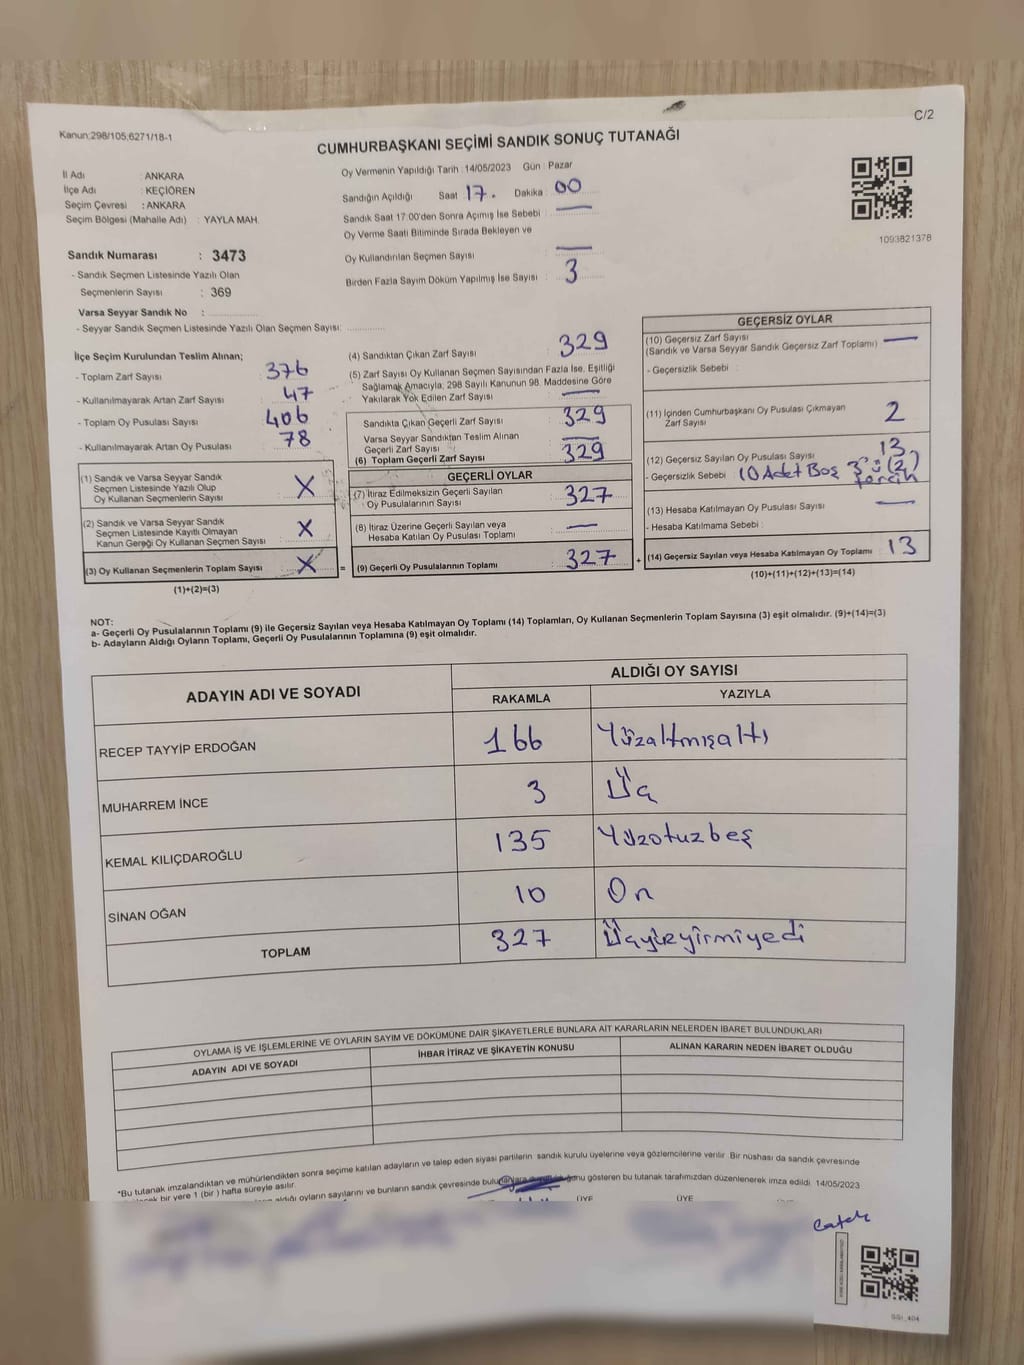 C/2
Kanun:298/105,6271/18-1
CUMHURBAŞKANI SEÇİMİ SANDIK SONUÇ TUTANAĞI
İl Adı : ANKARA
İlçe Adı : KEÇİÖREN
Seçim Çevresi : ANKARA
Seçim Bölgesi (Mahalle Adı) : YAYLA MAH.
Oy Vermenin Yapıldığı Tarih : 14/05/2023 Gün : Pazar
Sandığın Açıldığı Saat 17. Dakika 00
Sandık Saat 17:00'den Sonra Açımış İse Sebebi : —
Oy Verme Saati Bitiminde Sırada Bekleyen ve
Oy Kullandırılan Seçmen Sayısı : —
Birden Fazla Sayım Döküm Yapılmış İse Sayısı : 3
1093821378
Sandık Numarası : 3473
- Sandık Seçmen Listesinde Yazılı Olan
Seçmenlerin Sayısı : 369
Varsa Seyyar Sandık No :
- Seyyar Sandık Seçmen Listesinde Yazılı Olan Seçmen Sayısı:
İlçe Seçim Kurulundan Teslim Alınan;
- Toplam Zarf Sayısı : 376
- Kullanılmayarak Artan Zarf Sayısı : 47
- Toplam Oy Pusulası Sayısı : 406
- Kullanılmayarak Artan Oy Pusulası : 78
(1) Sandık ve Varsa Seyyar Sandık
Seçmen Listesinde Yazılı Olup
Oy Kullanan Seçmenlerin Sayısı : X
(2) Sandık ve Varsa Seyyar Sandık
Seçmen Listesinde Kayıtlı Olmayan
Kanun Gereği Oy Kullanan Seçmen Sayısı : X
(3) Oy Kullanan Seçmenlerin Toplam Sayısı : X
(1)+(2)=(3)
(4) Sandıktan Çıkan Zarf Sayısı : 329
(5) Zarf Sayısı Oy Kullanan Seçmen Sayısından Fazla İse, Eşitliği
Sağlamak Amacıyla; 298 Sayılı Kanunun 98. Maddesine Göre
Yakılarak Yok Edilen Zarf Sayısı : —
Sandıkta Çıkan Geçerli Zarf Sayısı : 329
Varsa Seyyar Sandıktan Teslim Alınan
Geçerli Zarf Sayısı : —
(6) Toplam Geçerli Zarf Sayısı : 329
GEÇERLİ OYLAR
(7) İtiraz Edilmeksizin Geçerli Sayılan
Oy Pusulalarının Sayısı : 327
(8) İtiraz Üzerine Geçerli Sayılan veya
Hesaba Katılan Oy Pusulası Toplamı : —
= (9) Geçerli Oy Pusulalarının Toplamı : 327 +
GEÇERSİZ OYLAR
(10) Geçersiz Zarf Sayısı
(Sandık ve Varsa Seyyar Sandık Geçersiz Zarf Toplamı) : —
- Geçersizlik Sebebi :
(11) İçinden Cumhurbaşkanı Oy Pusulası Çıkmayan
Zarf Sayısı : 2
(12) Geçersiz Sayılan Oy Pusulası Sayısı : 13
- Geçersizlik Sebebi : 10 Adet Boş 3'ü (2)
(13) Hesaba Katılmayan Oy Pusulası Sayısı : —
- Hesaba Katılmama Sebebi :
(14) Geçersiz Sayılan veya Hesaba Katılmayan Oy Toplamı : 13
(10)+(11)+(12)+(13)=(14)
NOT:
a- Geçerli Oy Pusulalarının Toplamı (9) ile Geçersiz Sayılan veya Hesaba Katılmayan Oy Toplamı (14) Toplamları, Oy Kullanan Seçmenlerin Toplam Sayısına (3) eşit olmalıdır. (9)+(14)=(3)
b- Adayların Aldığı Oyların Toplamı, Geçerli Oy Pusulalarının Toplamına (9) eşit olmalıdır.
ADAYIN ADI VE SOYADI
ALDIĞI OY SAYISI
RAKAMLA YAZIYLA
RECEP TAYYİP ERDOĞAN 166 Yüzaltmışaltı
MUHARREM İNCE 3 Üç
KEMAL KILIÇDAROĞLU 135 Yüzotuzbeş
SİNAN OĞAN 10 On
TOPLAM 327 Üçyüzyirmiyedi
OYLAMA İŞ VE İŞLEMLERİNE VE OYLARIN SAYIM VE DÖKÜMÜNE DAİR ŞİKAYETLERLE BUNLARA AİT KARARLARIN NELERDEN İBARET BULUNDUKLARI
ADAYIN ADI VE SOYADI İHBAR İTİRAZ VE ŞİKAYETİN KONUSU ALINAN KARARIN NEDEN İBARET OLDUĞU
*Bu tutanak imzalandıktan ve mühürlendikten sonra seçime katılan adayların ve talep eden siyasi partilerin sandık kurulu üyelerine veya gözlemcilerine verilir. Bir nüshası da sandık çevresinde
bir yere 1 (bir) hafta süreyle asılır.
aldığı oyların sayılarını ve bunların sandık çevresinde gösteren bu tutanak tarafımızdan düzenlenerek imza edildi. 14/05/2023
ÜYE ÜYE